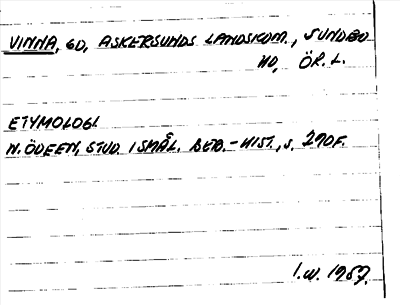 VINNA, GD, ASKERSUNDS LANDSKOM., SUNDBO
HD, ÖR. L.
ETYMOLOGI
N. ÖDEEN, STUD. I SMÅL. BEB.-HIST., S. 290F.
I.W. 1967.